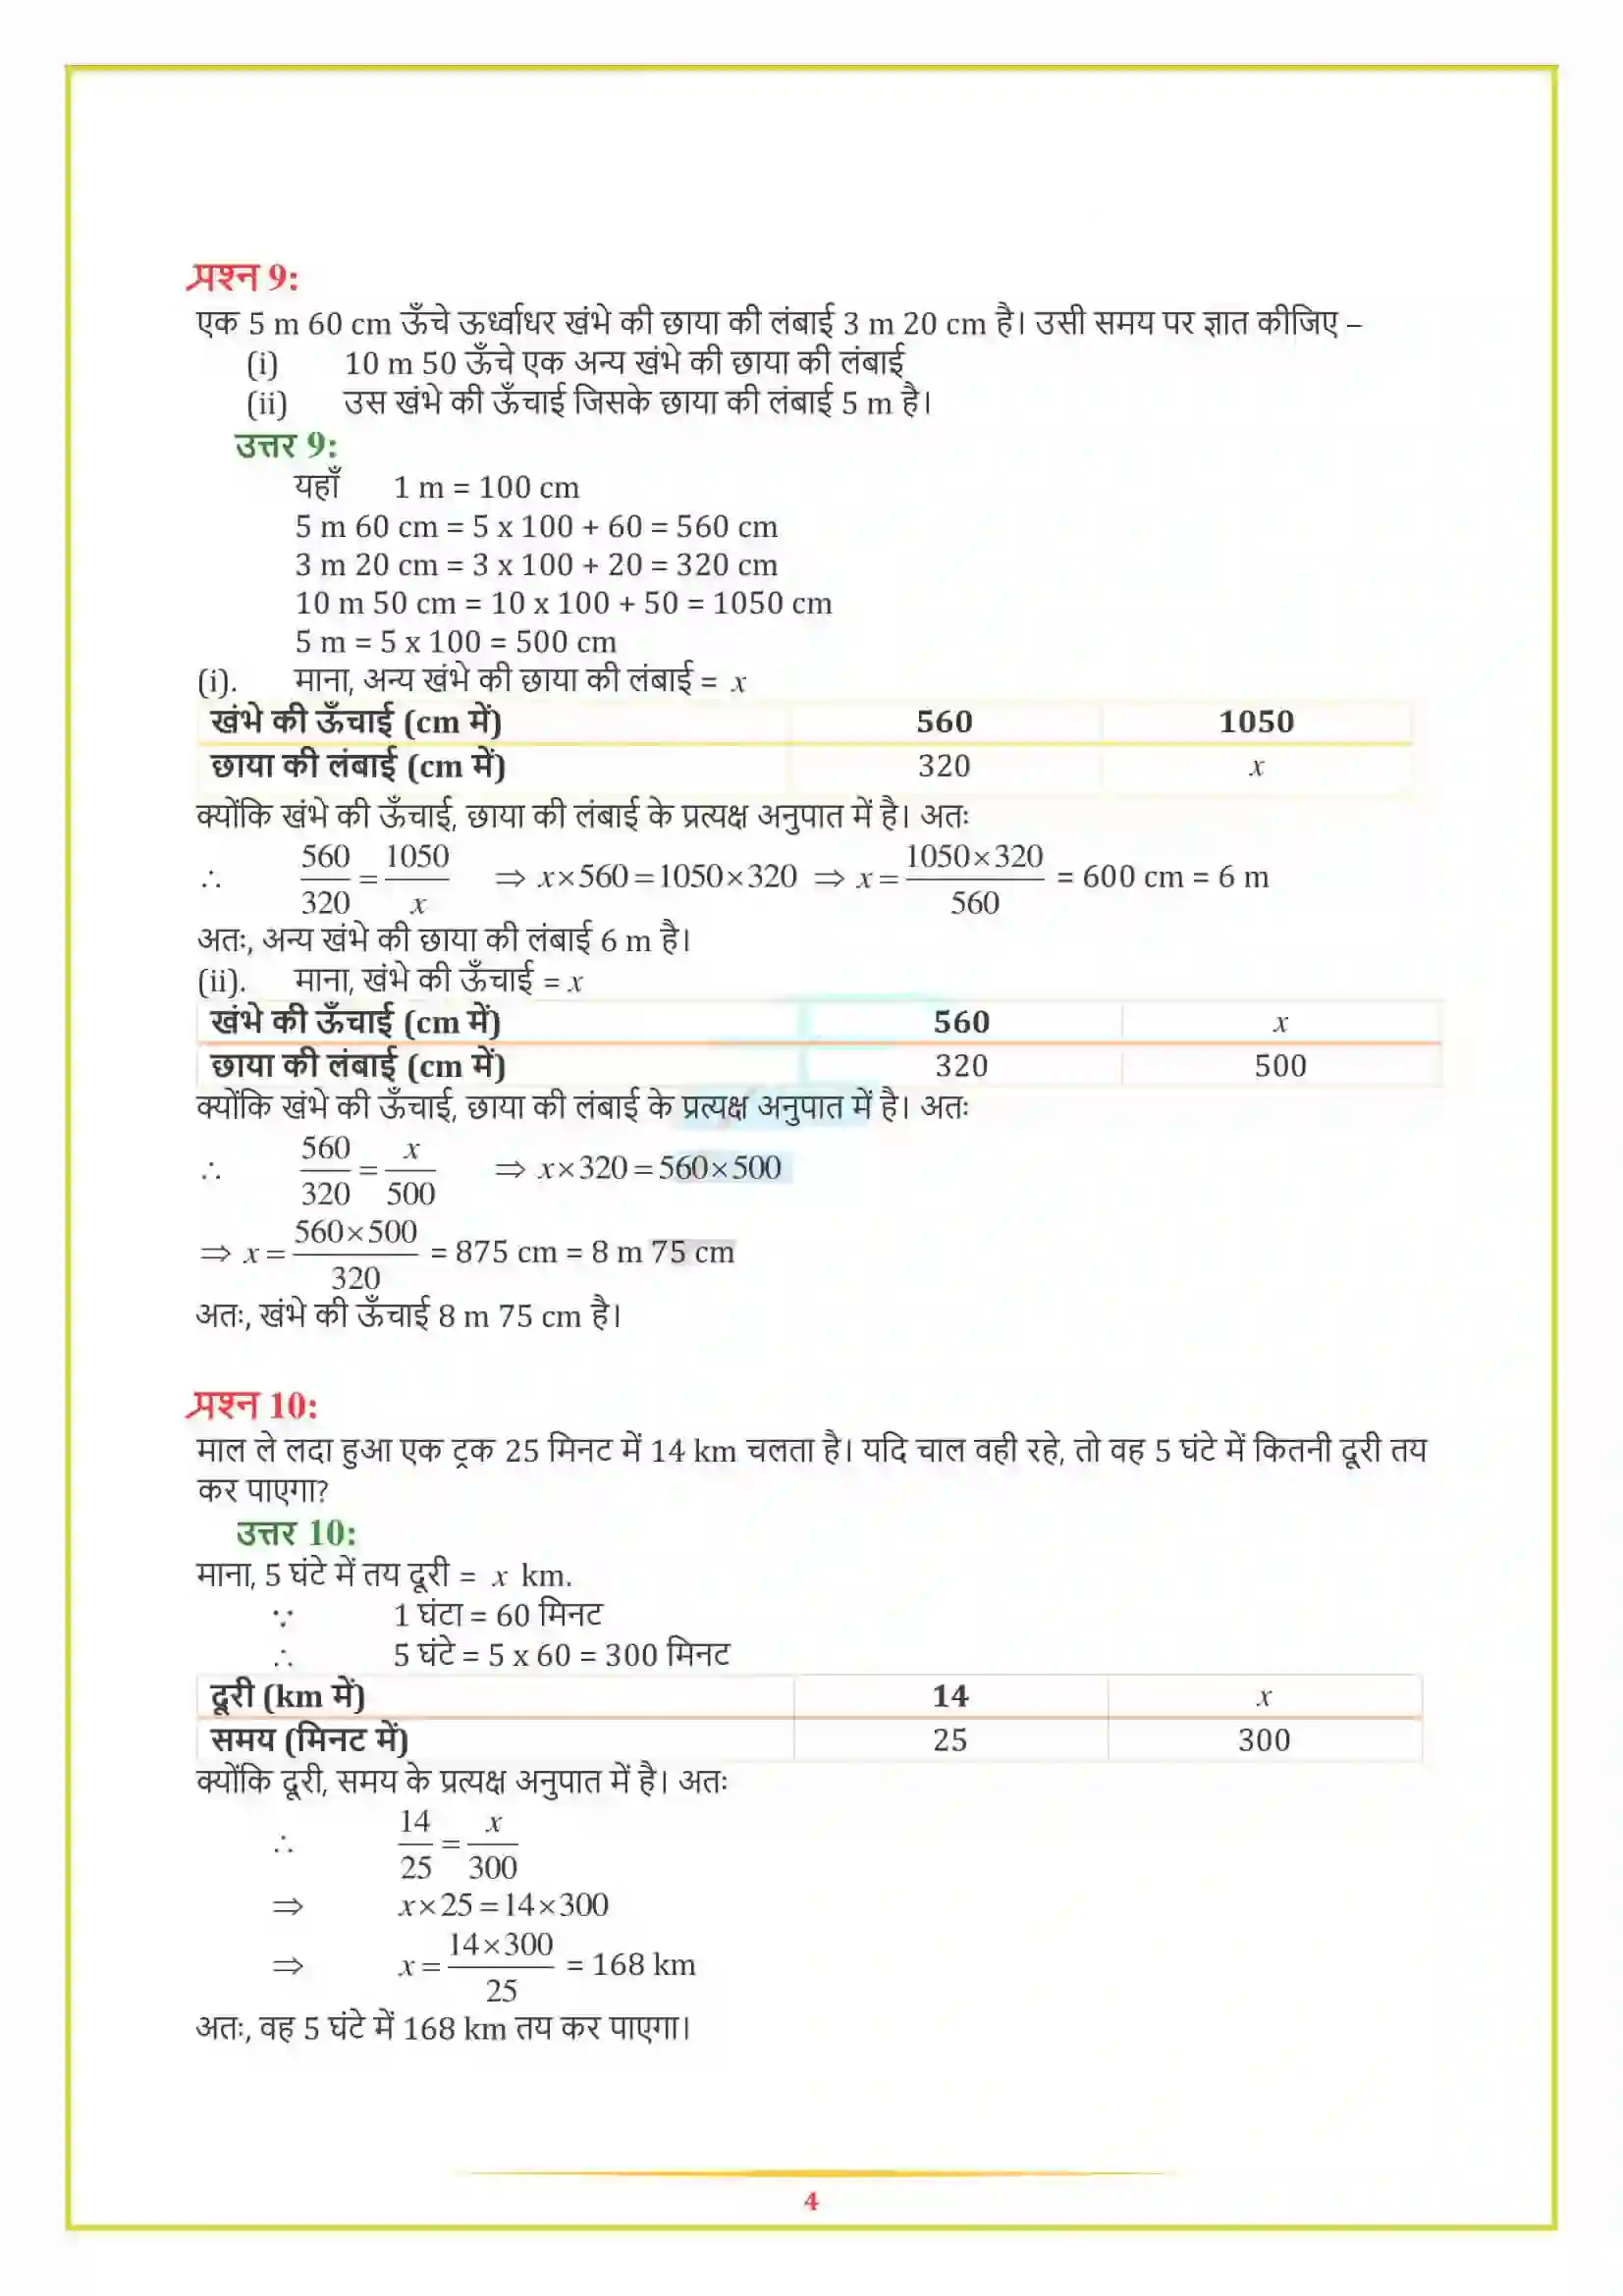 प्रश्न 9:
एक 5 m 60 cm ऊँचे ऊर्ध्वाधर खंभे की छाया की लंबाई 3 m 20 cm है। उसी समय पर ज्ञात कीजिए –
(i) 10 m 50 ऊँचे एक अन्य खंभे की छाया की लंबाई
(ii) उस खंभे की ऊँचाई जिसके छाया की लंबाई 5 m है।
उत्तर 9:
यहाँ 1 m = 100 cm
5 m 60 cm = 5 x 100 + 60 = 560 cm
3 m 20 cm = 3 x 100 + 20 = 320 cm
10 m 50 cm = 10 x 100 + 50 = 1050 cm
5 m = 5 x 100 = 500 cm
(i). माना, अन्य खंभे की छाया की लंबाई = x
खंभे की ऊँचाई (cm में) 560 1050
छाया की लंबाई (cm में) 320 x
क्योंकि खंभे की ऊँचाई, छाया की लंबाई के प्रत्यक्ष अनुपात में है। अतः
∴ 560/320 = 1050/x ⇒ x×560=1050×320 ⇒ x = 1050×320/560 = 600 cm = 6 m
अतः, अन्य खंभे की छाया की लंबाई 6 m है।
(ii). माना, खंभे की ऊँचाई = x
खंभे की ऊँचाई (cm में) 560 x
छाया की लंबाई (cm में) 320 500
क्योंकि खंभे की ऊँचाई, छाया की लंबाई के प्रत्यक्ष अनुपात में है। अतः
∴ 560/320 = x/500 ⇒ x×320=560×500
⇒ x = 560×500/320 = 875 cm = 8 m 75 cm
अतः, खंभे की ऊँचाई 8 m 75 cm है।
प्रश्न 10:
माल ले लदा हुआ एक ट्रक 25 मिनट में 14 km चलता है। यदि चाल वही रहे, तो वह 5 घंटे में कितनी दूरी तय
कर पाएगा?
उत्तर 10:
माना, 5 घंटे में तय दूरी = x km.
∵ 1 घंटा = 60 मिनट
∴ 5 घंटे = 5 x 60 = 300 मिनट
दूरी (km में) 14 x
समय (मिनट में) 25 300
क्योंकि दूरी, समय के प्रत्यक्ष अनुपात में है। अतः
∴ 14/25 = x/300
⇒ x×25=14×300
⇒ x = 14×300/25 = 168 km
अतः, वह 5 घंटे में 168 km तय कर पाएगा।
4